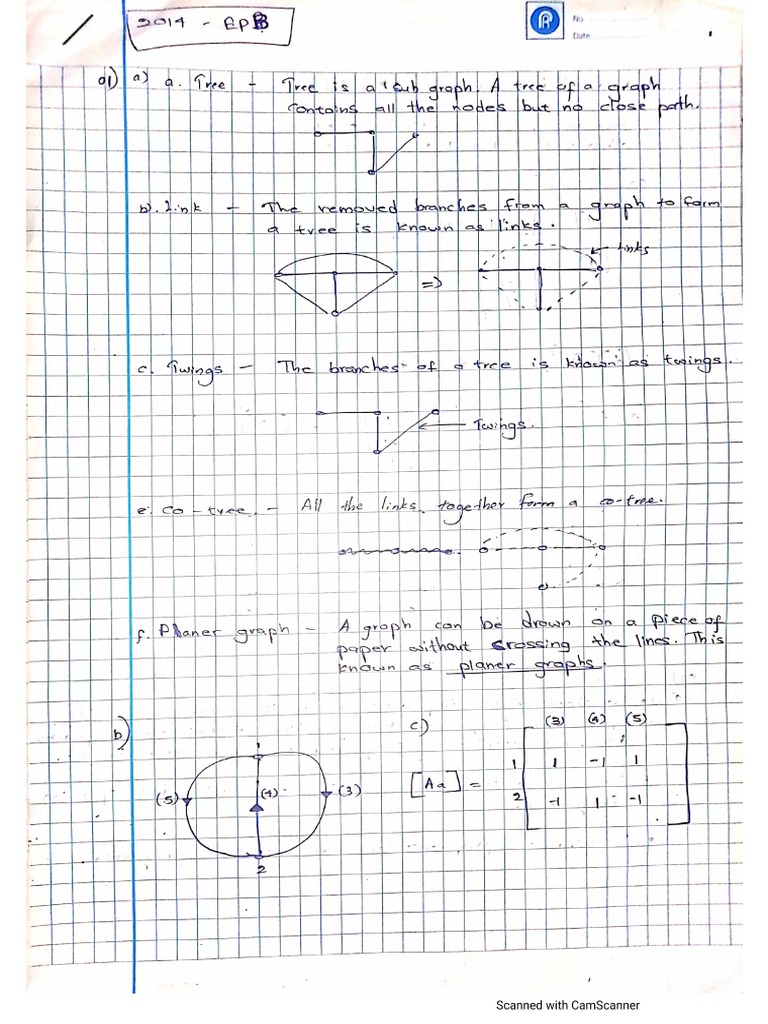 2014 - EPB
No
Date
01) a) a. Tree - Tree is a sub graph. A tree of a graph
contains all the nodes but no close path.
b). Link - The removed branches from a graph to form
a tree is known as links.
Links
=>
c. Twings - The branches of a tree is known as twings.
Twings.
e. Co-tree. - All the links, together form a co-tree.
f. Planer graph - A graph can be drown on a piece of
paper without crossing the lines. This is
known as planer graphs.
b)
1
(5) (4) (3)
2
c)
(3) (4) (5)
[Aa] =
1 1 -1 1
2 -1 1 -1
Scanned with CamScanner